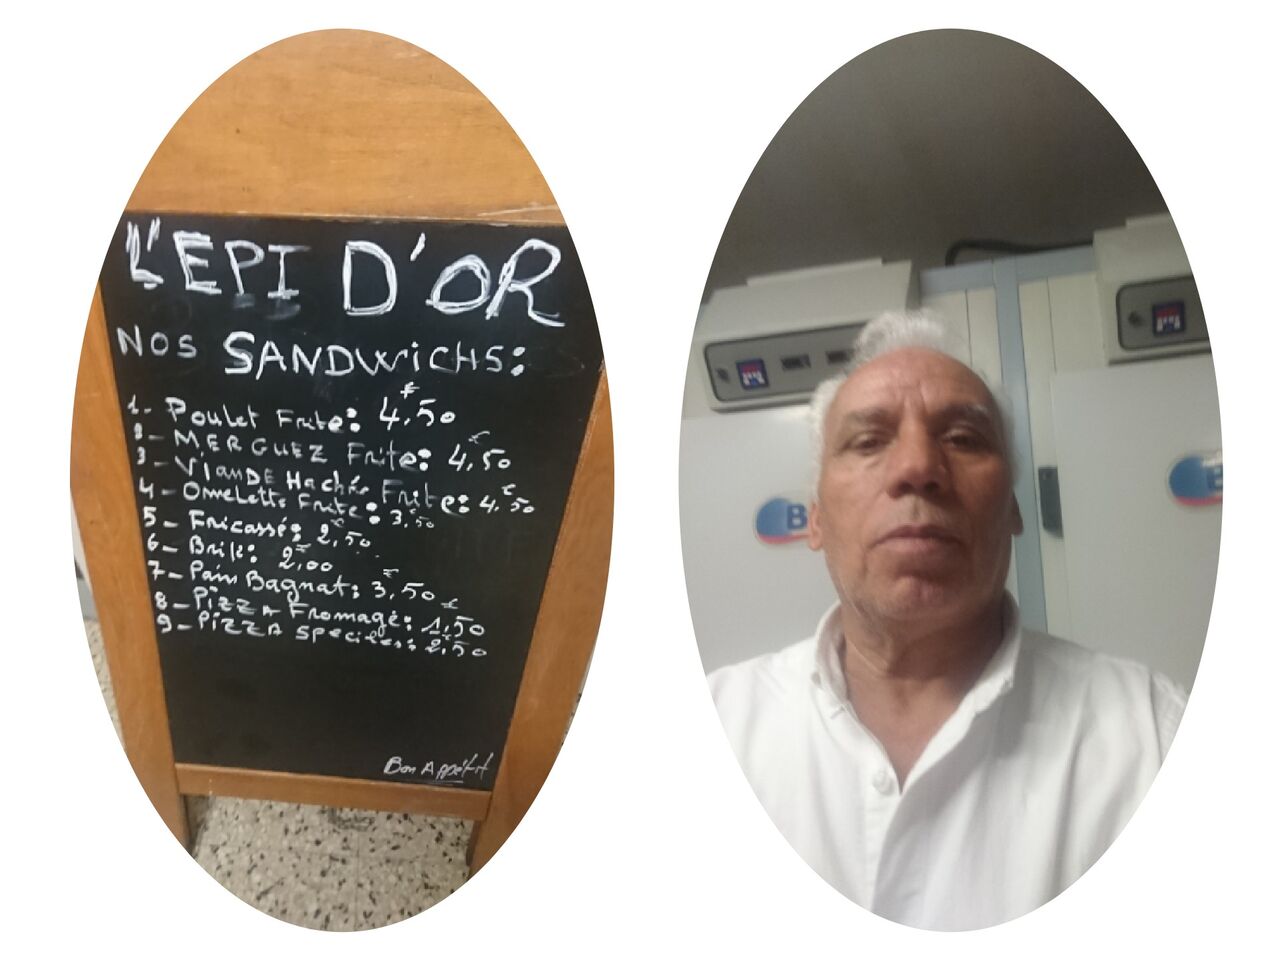 L'EPI D'OR
NOS SANDWiCHS:
1- Poulet Frite: 4,50 €
2- MERGUEZ Frite: 4,50 €
3- ViANDE Hachée Frite: 4,50 €
4- Omelette Frite: 3,50 €
5- Fricassé: 2,50 €
6- Brik: 2,00 €
7- Pain Bagnat: 3,50 €
8- PizzA Fromage: 1,50 €
9- PizzA Speciles: 2,50 €
Bon Appétit
B
B